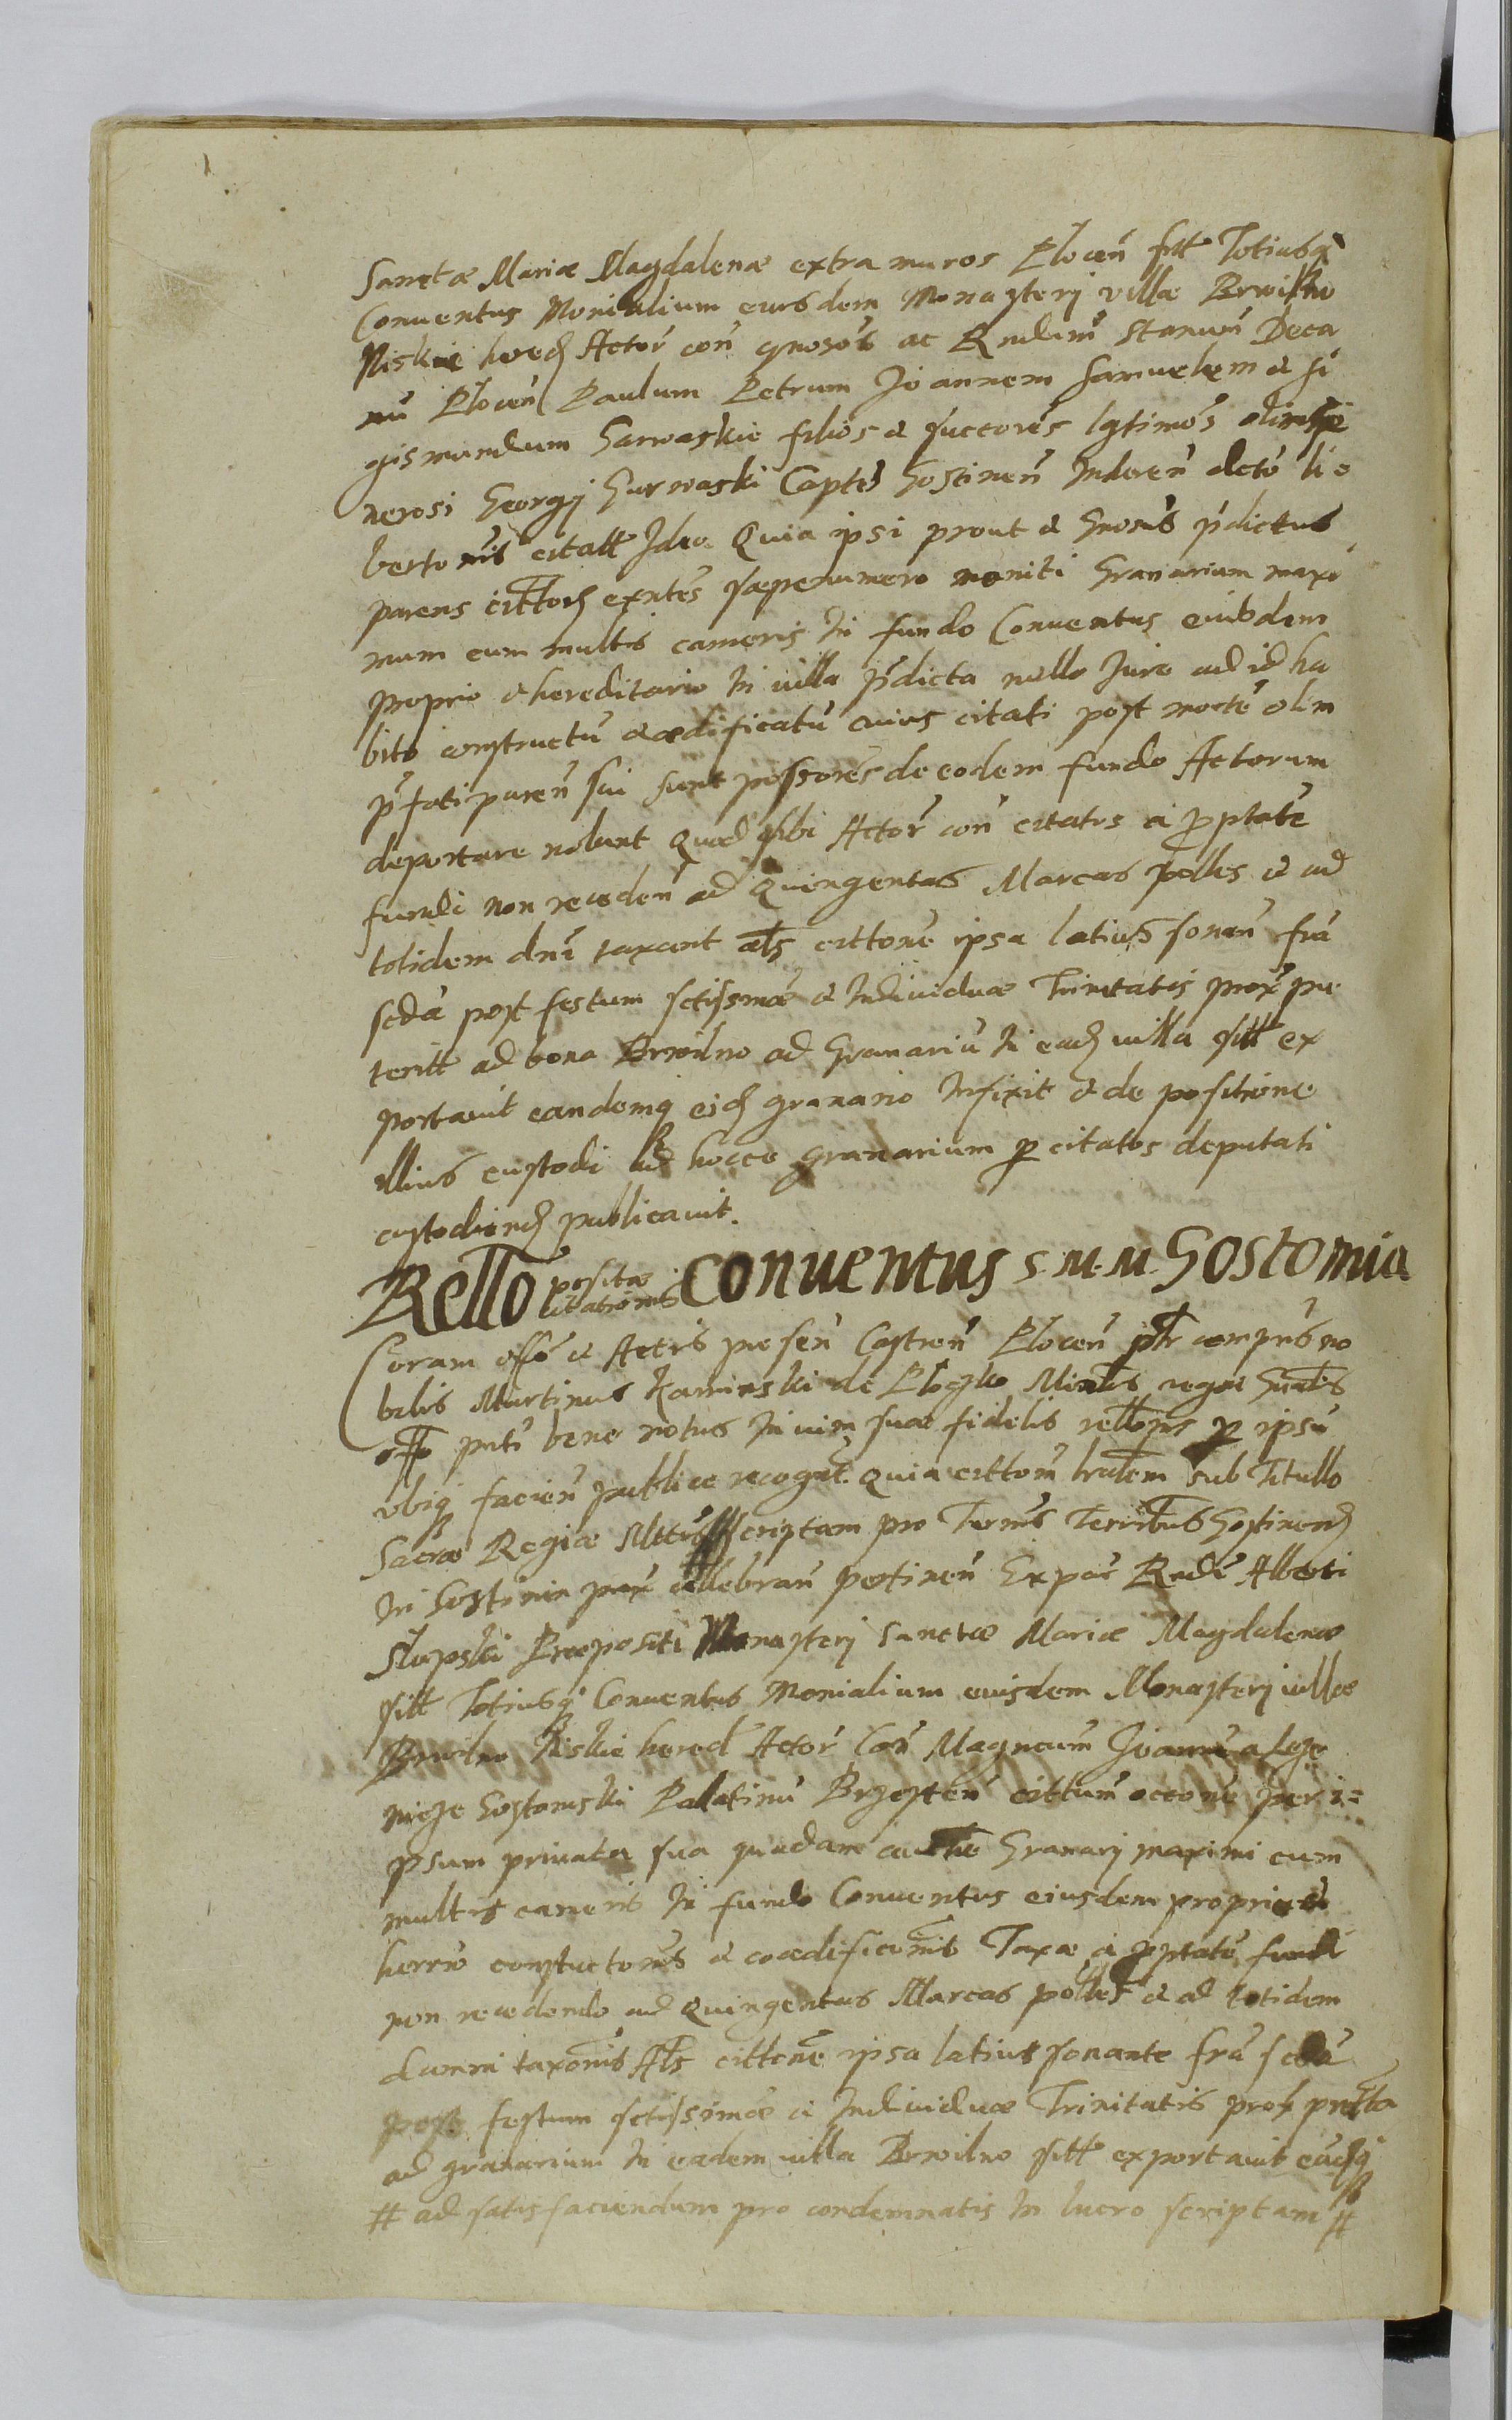 Sanctæ Mariæ Magdalenæ extra muros Plocen̄ sitt Totiusq̢
Conuentus Monialium eiusdem Monasterj villæ Brwilno
Niskie hered Actor con gnosos ac Rndum Stanum Deca
nū Plocen Paulum Petrum Joannem Samuelem et Si
gismundum Garwaskie filios et suctores lgtimos olim ge
nerosi Georgij Garwaski Captej Gostinen Inheren dcto li
bertonis citatt Ideo Quia ipsi prout et Gnosus pdictus
parens cittor exntes sæpenumero moniti Granarium maxi
mum cum multis cameris in fundo Conuentus eiusdem
proprio et hereditario in villa pdicta nullo Jure ad id ha
bito constructū et ædificatū cuius citati post mortē olim
pfati paren sui sunt possores de eodem fundo Actorum
deportare nolunt Quod sibi Actor con citatos a pptate
fundi non receden ad Quingentas Marcas polles et ad
totidem dni taxant als cittone ipsa latius sonan fra
scda post festum sctissmæ et Indiuiduæ Trinitatis prox præ
teritt ad bona Brwilno ad Granariū in ead villa sitt ex
portauit eandemq̢ eid granario infixit et de positione
illius custodi ad hocce granarium p citatos deputati
custodiend publicauit.
Rello positæ citationis Conuentus S. M. M. Gostomia
Coram offo et Actis præsen Castren Plocen ptr comprns no
bilis Martinus Kaminski de Ploczko Minlis regni Gnalis
offo pnti bene notus in vim suæ fidelis rellonis p ipsū
vbiq̢ facien publice recognt Quia cittom lralem sub Titullo
Sacræ Regiæ Mttis scriptam pro Termis Terribus Gostinen
in Gostinin prox cellebran pertinen Ex pte Rndi Alberti
Slupski Præpositi Monasterj Sanctæ Mariæ Magdalenæ
sitt Totiusq̢ Conuentus Monialium eiusdem Monasterj villæ
Brwilno Niskie hered Actor Con Magncum Joannē a Leże
nicze Gostomski Palatinū Brzesten cittum occone per i=
psum priuata sua quadam aucthe Granarj maximi cum
multis cameris in fundo Conuentus eiusdem proprio et
herrio constuctonis et coædificionis Taxæ a pptate fundi
non recedendo ad Quingentas Marcas polles et ad totidem
damni taxonis Als cittone ipsa latius sonante fra scda
post festum sctissimæ et Indiuiduæ Trinitatis prox prætta
ad granarium in eadem villa Brwilno sitt exportauit eadq̢
# ad satisfaciendum pro condemnatis in lucro scriptam #